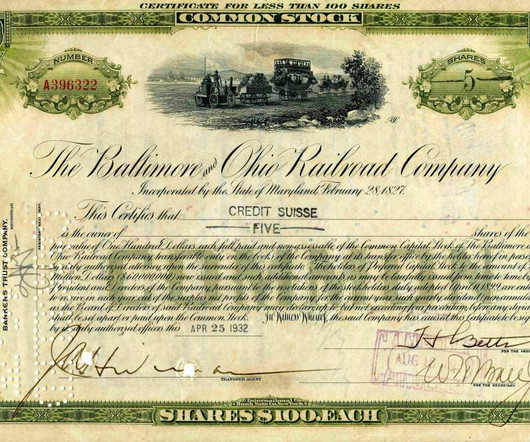 CERTIFICATE FOR LESS THAN 100 SHARES
COMMON STOCK
NUMBER
A396322
SHARES
5
The Baltimore and Ohio Railroad Company
Incorporated by the State of Maryland, February 28, 1827.
This Certifies that CREDIT SUISSE
FIVE
is the owner of shares of the
par value of One Hundred Dollars each full paid and non-assessable of the Common Capital Stock of The Baltimore and
Ohio Railroad Company transferable only on the books of the Company
upon the surrender of this certificate. The holders of Preferred Capital Stock to the amount of
Million Dollars now issued and
President and Directors of the Company pursuant to the resolutions of the stockholders duly adopted April 18, 1899 are entitled
to receive in each year out of the surplus net profits of the Company
as the Board of Directors of said Railroad Company may declare up to but not exceeding four per centum before any dividend
shall be set apart or paid upon the Common Stock. In Witness Whereof, the said Company has caused this certificate to be signed
by its duly authorized officers this APR 25 1932
BANKERS TRUST COMPANY,
AUG
TRANSFER AGENT
FOR THE SECRETARY
International
Bank Note Co. New York
SHARES $100. EACH